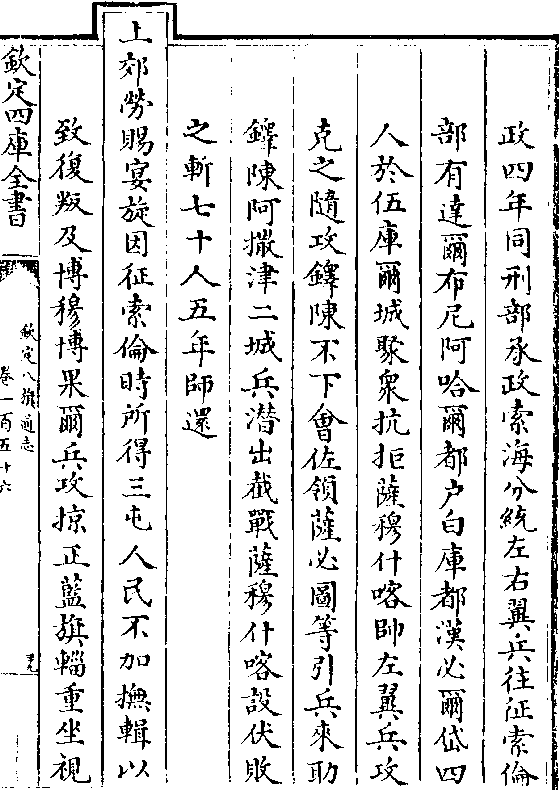 政四年同刑部承政索海分統左右翼兵往征索倫
部有達爾布尼阿哈爾都户白庫都漢必爾岱四
人於伍庫爾城聚衆抗拒薩穆什喀帥左翼兵攻
克之隨攻鐸陳不下會佐領薩必圖等引兵來助
鐸陳阿撒津二城兵潜出截戰薩穆什喀設伏敗
之斬七十人五年師還
上郊勞賜宴旋因征索倫時所得三屯人民不加撫輯以
致復叛及博穆博果爾兵攻掠正藍旗輜重坐視
欽定四庫全書
欽定八旗通志
卷一百五十六